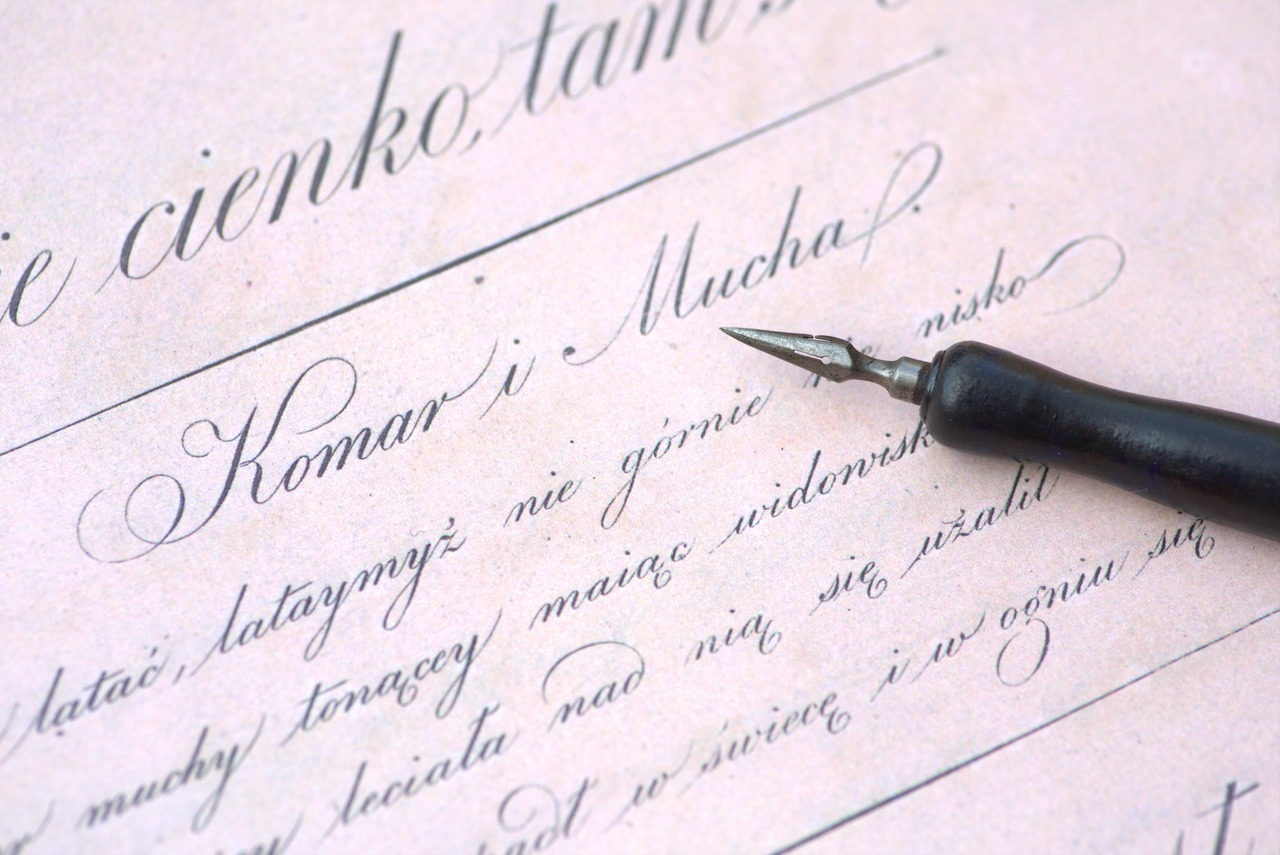 cienko, tam
Komar i Mucha.
latać, lataymyż nie górnie nisko
muchy tonącey maiąc widowisk
leciała nad nią się użalił
w świecę i w ogniu się